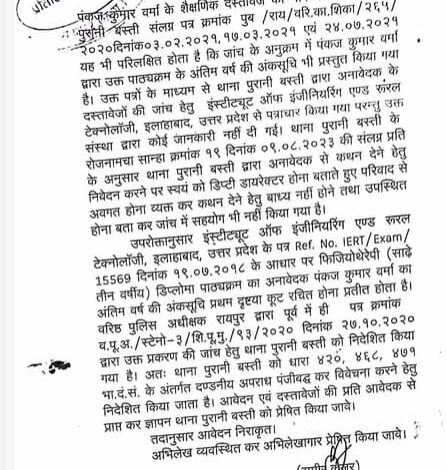 पंकज कुमार वर्मा के शैक्षणिक दस्तावेजों
पुरानी बस्ती संलग्न पत्र क्रमांक पुब /राय/वरि.का.शिका/२६५/
२०२०दिनांक०३.०२.२०२१,१७.०३.२०२१ एवं २४.०७.२०२१
यह भी परिलक्षित होता है कि जांच के अनुक्रम में पंकज कुमार वर्मा
द्वारा उक्त पाठ्यक्रम के अंतिम वर्ष की अंकसूचि भी प्रस्तुत किया गया
है। उक्त पत्रों के माध्यम से थाना पुरानी बस्ती द्वारा अनावेदक के
दस्तावेजों की जांच हेतु इंस्टीट्यूट ऑफ इंजीनियरिंग एण्ड रूरल
टेक्नोलॉजी, इलाहाबाद, उत्तर प्रदेश से पत्राचार किया गया परन्तु उक्त
संस्था द्वारा कोई जानकारी नहीं दी गई। थाना पुरानी बस्ती के
रोजनामचा सान्हा क्रमांक १९ दिनांक ०९.०८.२०२३ की संलग्न प्रति
के अनुसार थाना पुरानी बस्ती द्वारा अनावेदक से कथन देने हेतु
निवेदन करने पर स्वयं को डिप्टी डायरेक्टर होना बताते हुए परिवाद से
अवगत होना व्यक्त कर कथन देने हेतु बाध्य नहीं होने तथा उपस्थित
होना बता कर जांच में सहयोग भी नहीं किया गया है।
उपरोक्तानुसार इंस्टीट्यूट ऑफ इंजीनियरिंग एण्ड रूरल
टेक्नोलॉजी, इलाहाबाद, उत्तर प्रदेश के पत्र Ref. No. IERT/Exam/
15569 दिनांक १९.०७.२०१८ के आधार पर फिजियोथेरेपी (साढ़े
तीन वर्षीय) डिप्लोमा पाठ्यक्रम का अनावेदक पंकज कुमार वर्मा का
अंतिम वर्ष की अंकसूचि प्रथम दृष्टया कूट रचित होना प्रतीत होता है।
वरिष्ठ पुलिस अधीक्षक रायपुर द्वारा पूर्व में ही पत्र क्रमांक
व.पु.अ./स्टेनो-३/शि.पू.मु./९३/२०२० दिनांक २७.१०.२०२०
द्वारा उक्त प्रकरण की जांच हेतु थाना पुरानी बस्ती को निर्देशित किया
गया है। अतः थाना पुरानी बस्ती को धारा ४२०, ४६८, ४७१
भा.दं.सं. के अंतर्गत दण्डनीय अपराध पंजीबद्ध कर विवेचना करने हेतु
निर्देशित किया जाता है। आवेदन एवं दस्तावेजों की प्रति आवेदक से
प्राप्त कर ज्ञापन थाना पुरानी बस्ती को प्रेषित किया जावे।
तदानुसार आवेदन निराकृत।
अभिलेख व्यवस्थित कर अभिलेखागार प्रेषित किया जावे।